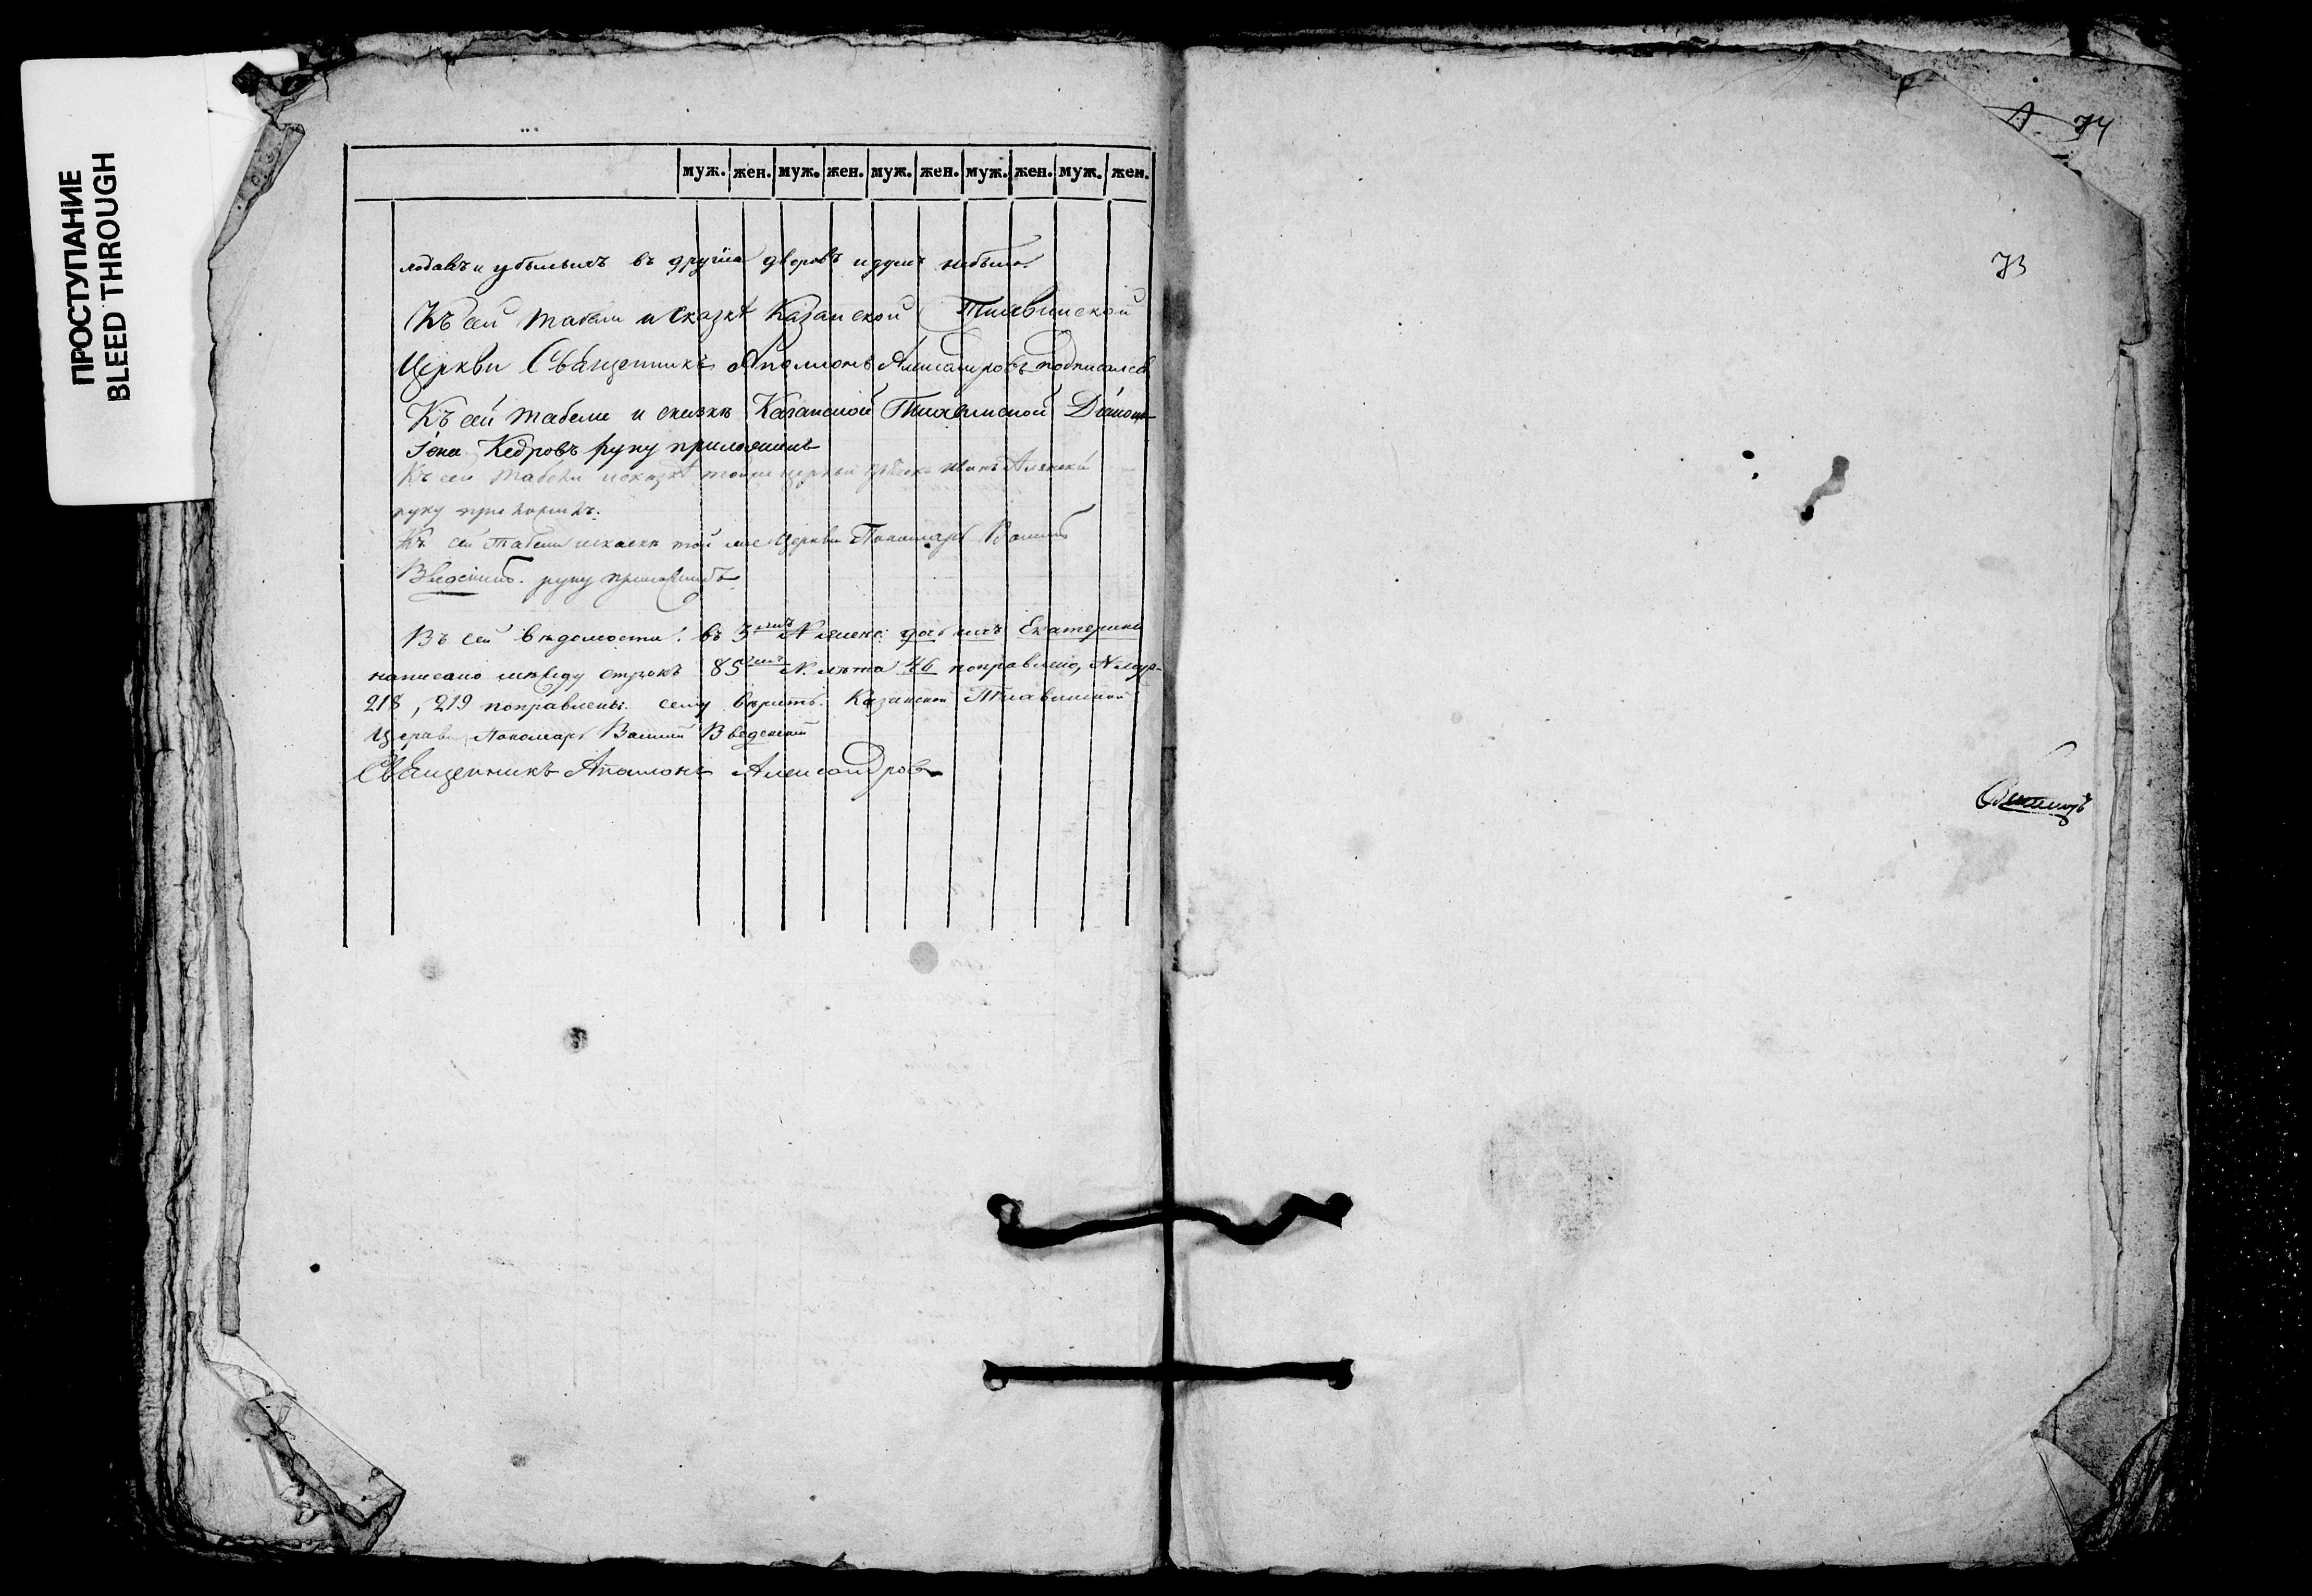 ПРОСТУПАНИЕ
BLEED THROUGH
муж. жен. муж. жен. муж. жен. муж. жен. муж. жен.
въ другия дворовъ небыло.
Къ сей табели и сказкѣ Казанской
Церкви Священникъ Аполлонъ Александровъ подписался
Къ сей табели и сказкѣ Казанской
Іона Кедровъ руку приложилъ
Къ сей табели и сказкѣ тойже церкви Алексей
руку приложилъ.
Къ сей табели и сказкѣ той же Церкви Пономарь Василий
Введенский руку приложилъ
Въ сей вѣдомости: въ 3 дочь ихъ Екатерина
написано между строкъ 85 N. лѣта 46 поправлено,
218, 219 поправлены. сему вѣрить. Казанской
Церкви Пономарь Василий Введенский
Священникъ Аполлонъ Александровъ
74
73